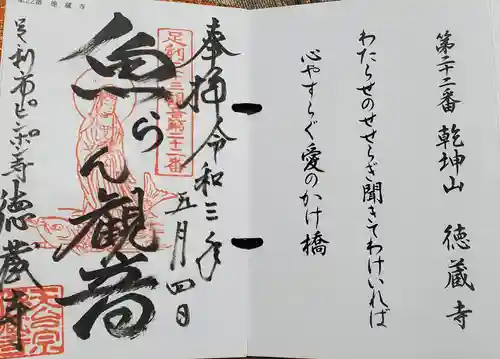 第二十二番 乾坤山 徳蔵寺
わたらせのせせらぎ聞きてわけいれば
心やすらぐ愛のかけ橋
奉拝 令和三年五月四日
足利三十三観音第二十二番
魚らん観音
徳蔵寺
第22番 徳蔵寺